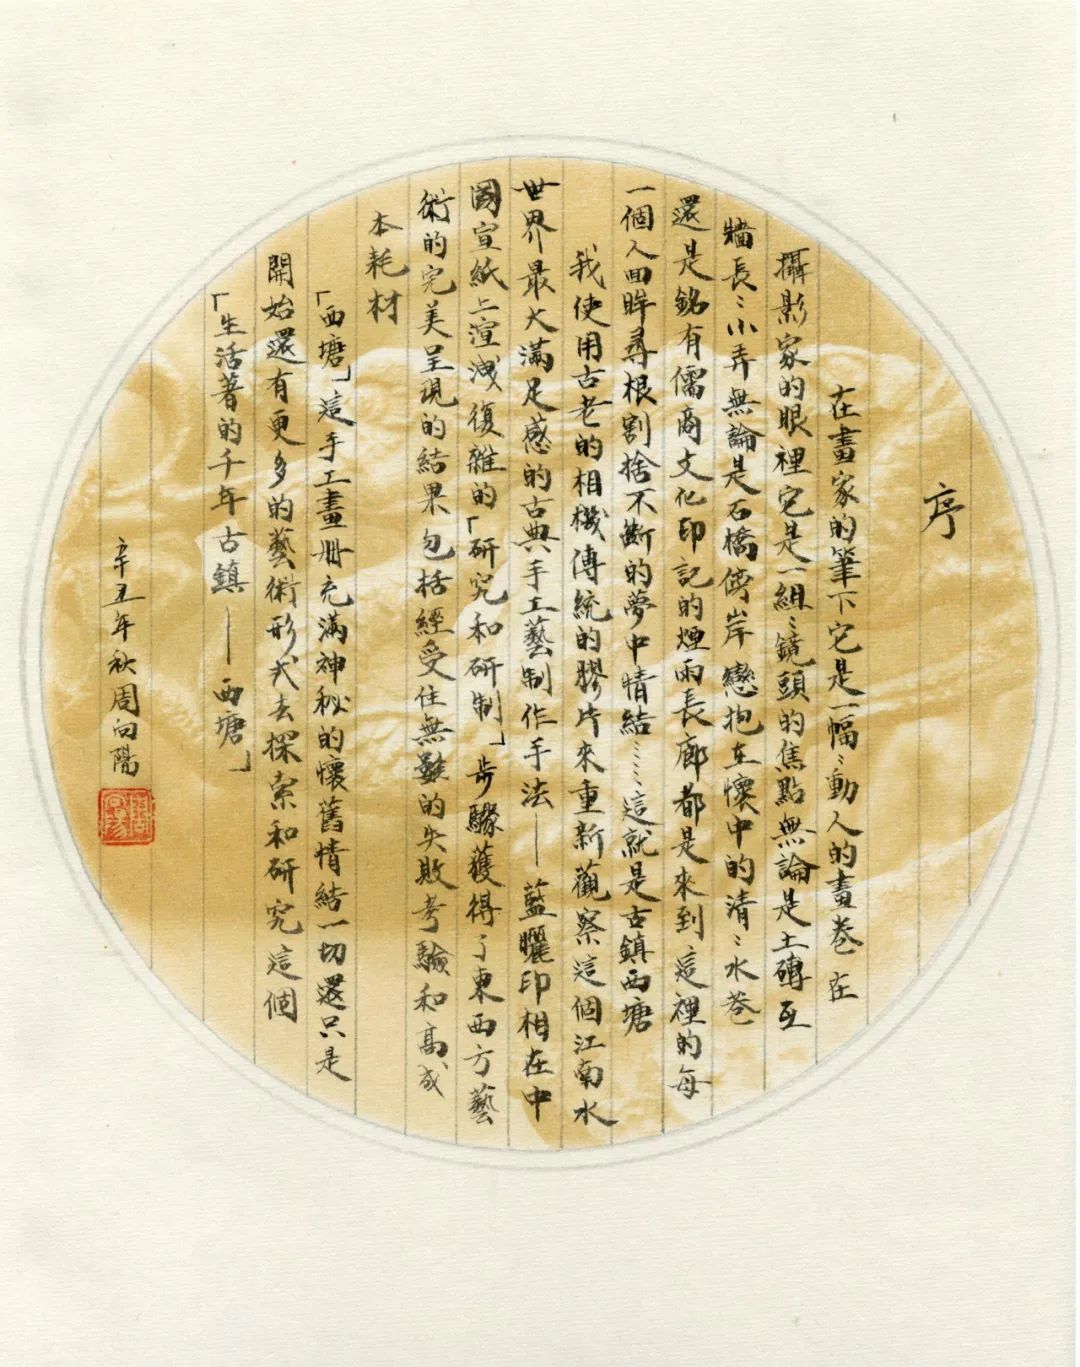 序
在畫家的筆下它是一幅〻動人的畫卷 在
攝影家的眼裡它是一組〻鏡頭的焦點無論是土磚瓦
牆長〻小弄無論是石橋傍岸戀抱在懷中的清〻水巷
還是銘有儒商文化印記的煙雨長廊都是來到這裡的每
一個人回眸尋根割捨不斷的夢中情結……這就是古鎮西塘
我使用古老的相機傳統的膠片來重新觀察這個江南水
世界最大滿足感的古典手工藝制作手法——藍曬印相在中
國宣紙上渲洩復雜的「研究和研制」步驟獲得了東西方藝
術的完美呈現的結果包括經受住無數的失敗考驗和高成
本耗材
「西塘」這手工畫冊充滿神秘的懷舊情結一切還只是
開始還有更多的藝術形式去探索和研究這個
「生活著的千年古鎮——西塘」
辛丑年秋周向陽